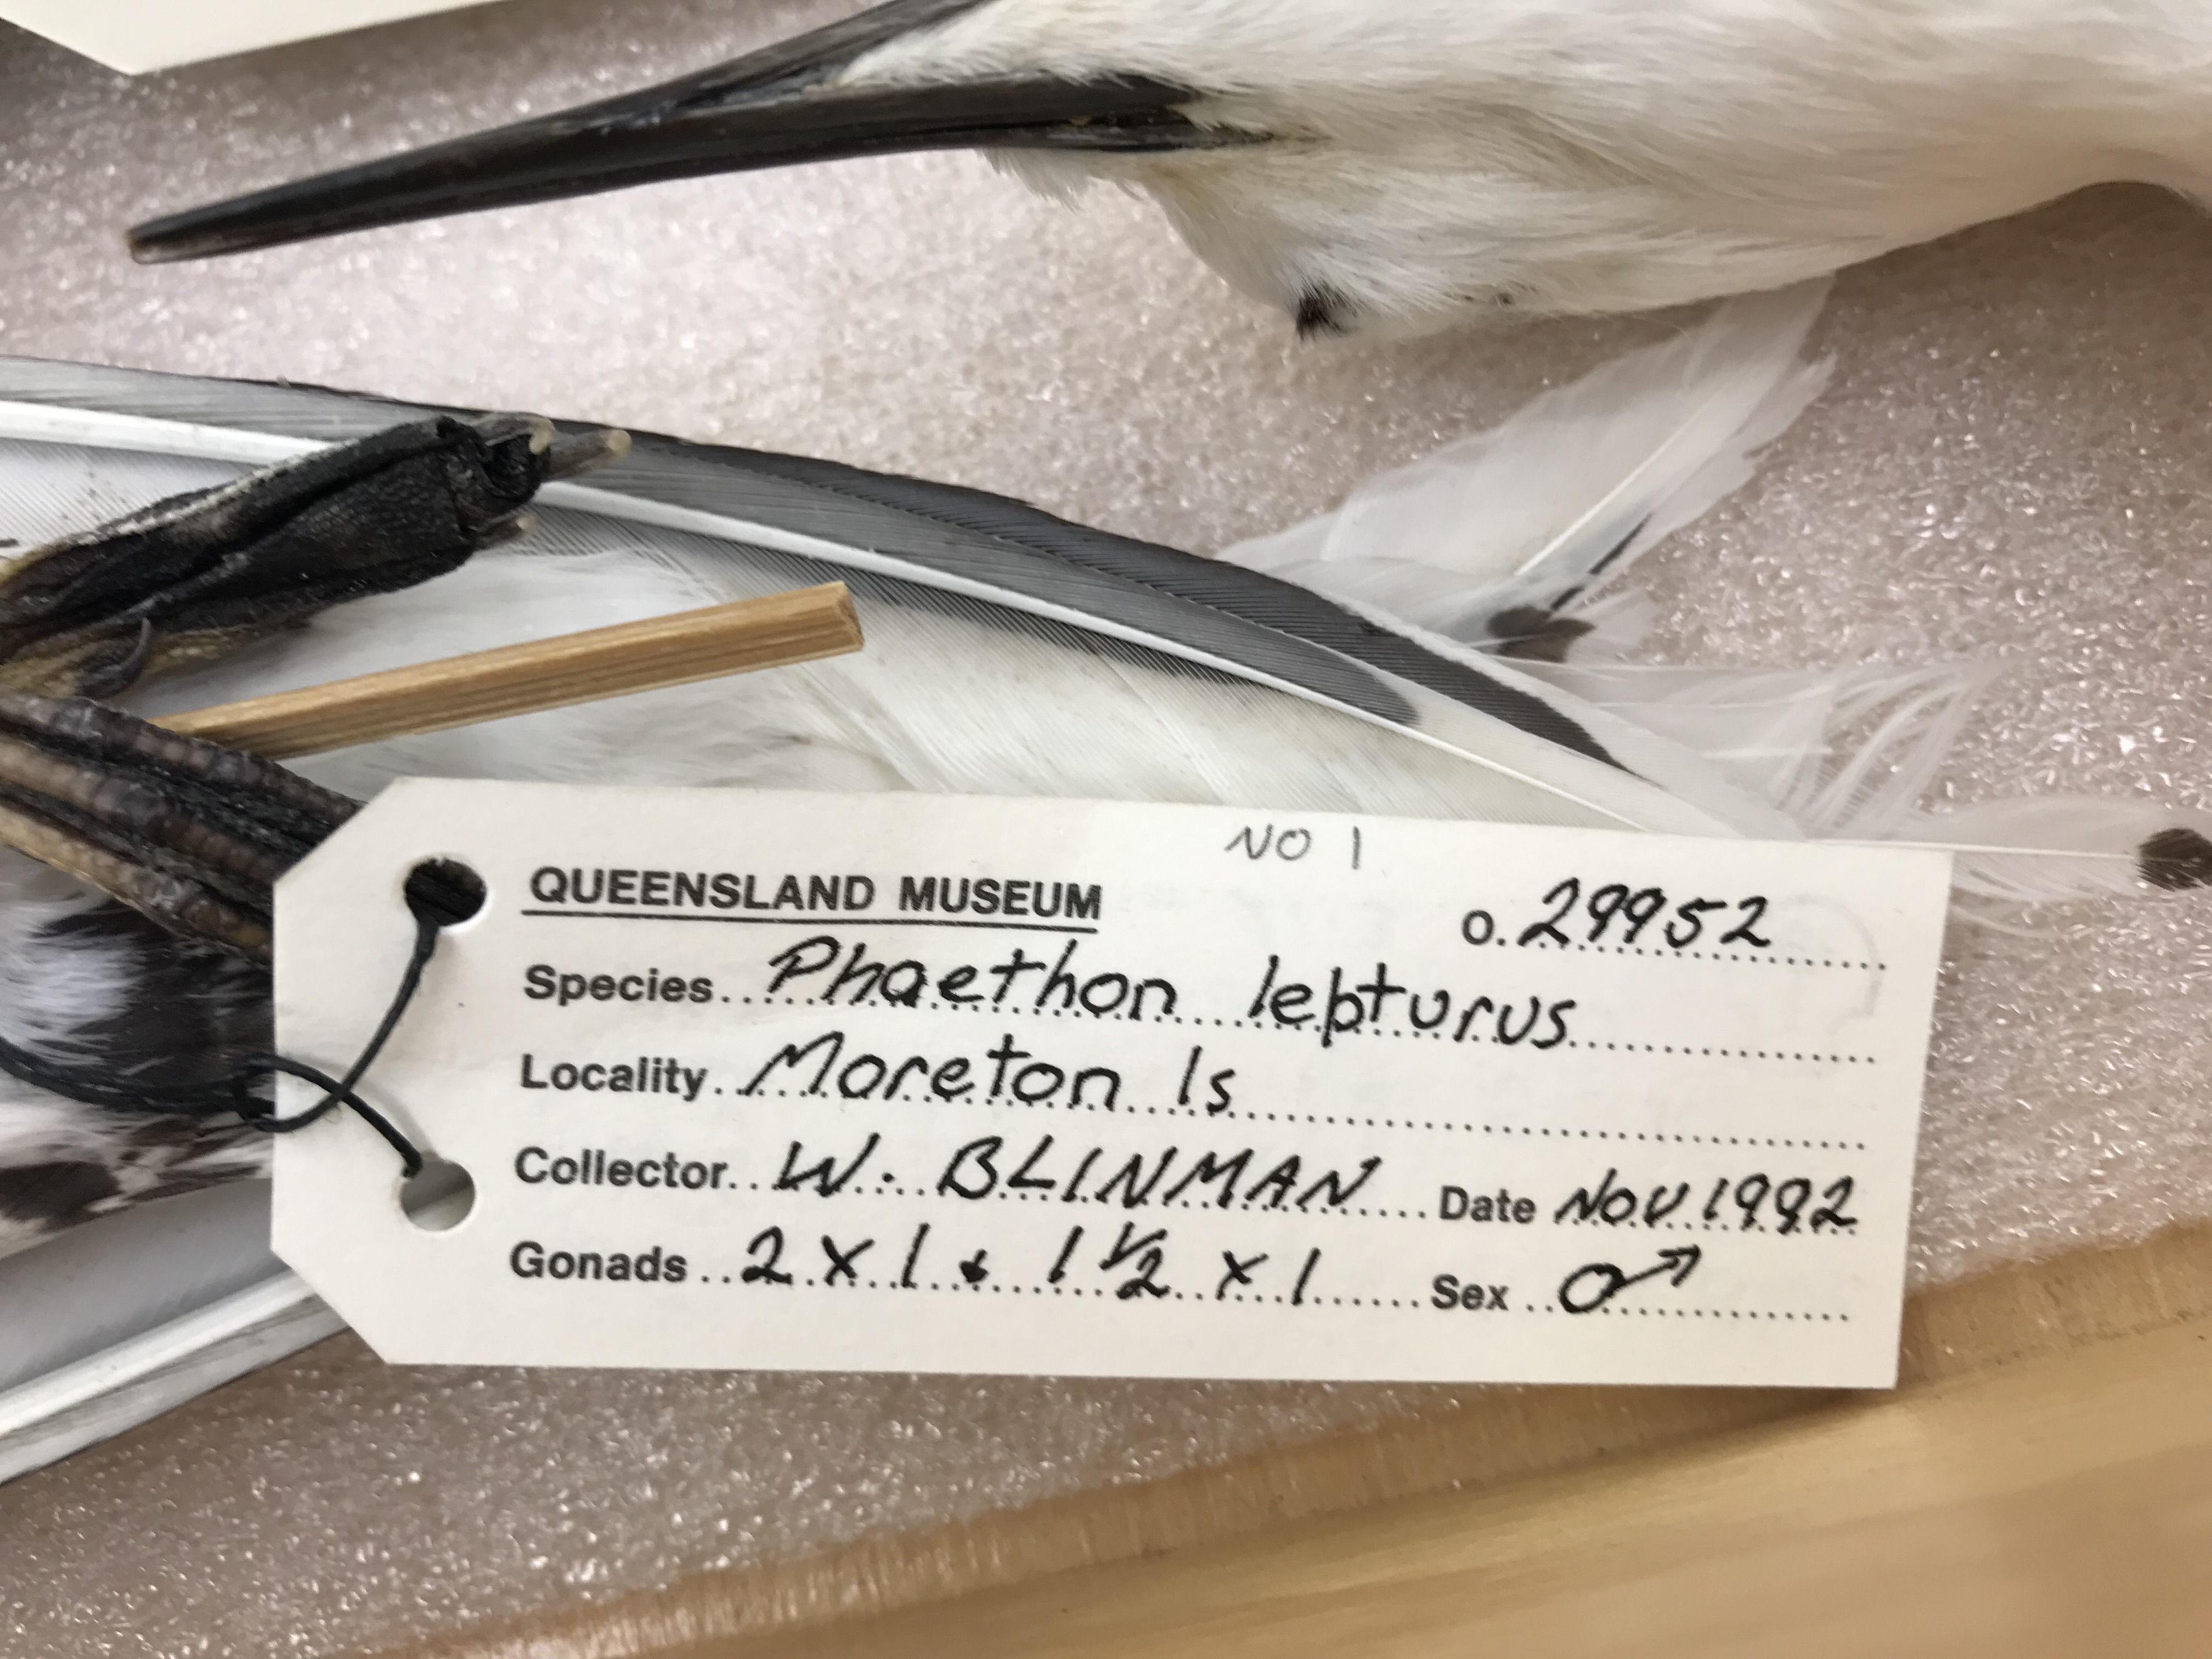 NO 1
QUEENSLAND MUSEUM O. 29952
Species.. Phaethon lepturus
Locality. Moreton Is
Collector.. W. BLINMAN Date Nov 1992
Gonads.. 2 x 1 & 1 ½ x 1 Sex.. ♂